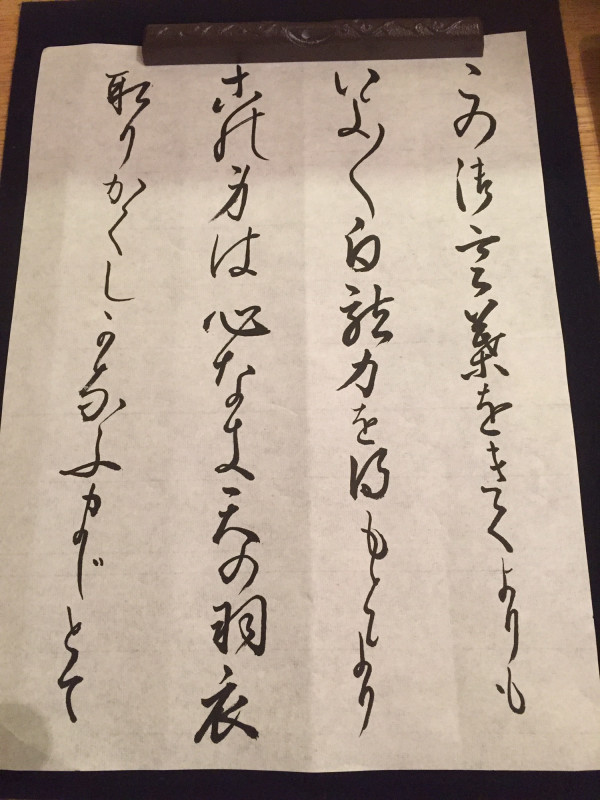 この御言葉をきくよりも
いよ〱白龍力を得もとより
この身は心なき天の羽衣
取りかくしかなふまじとて